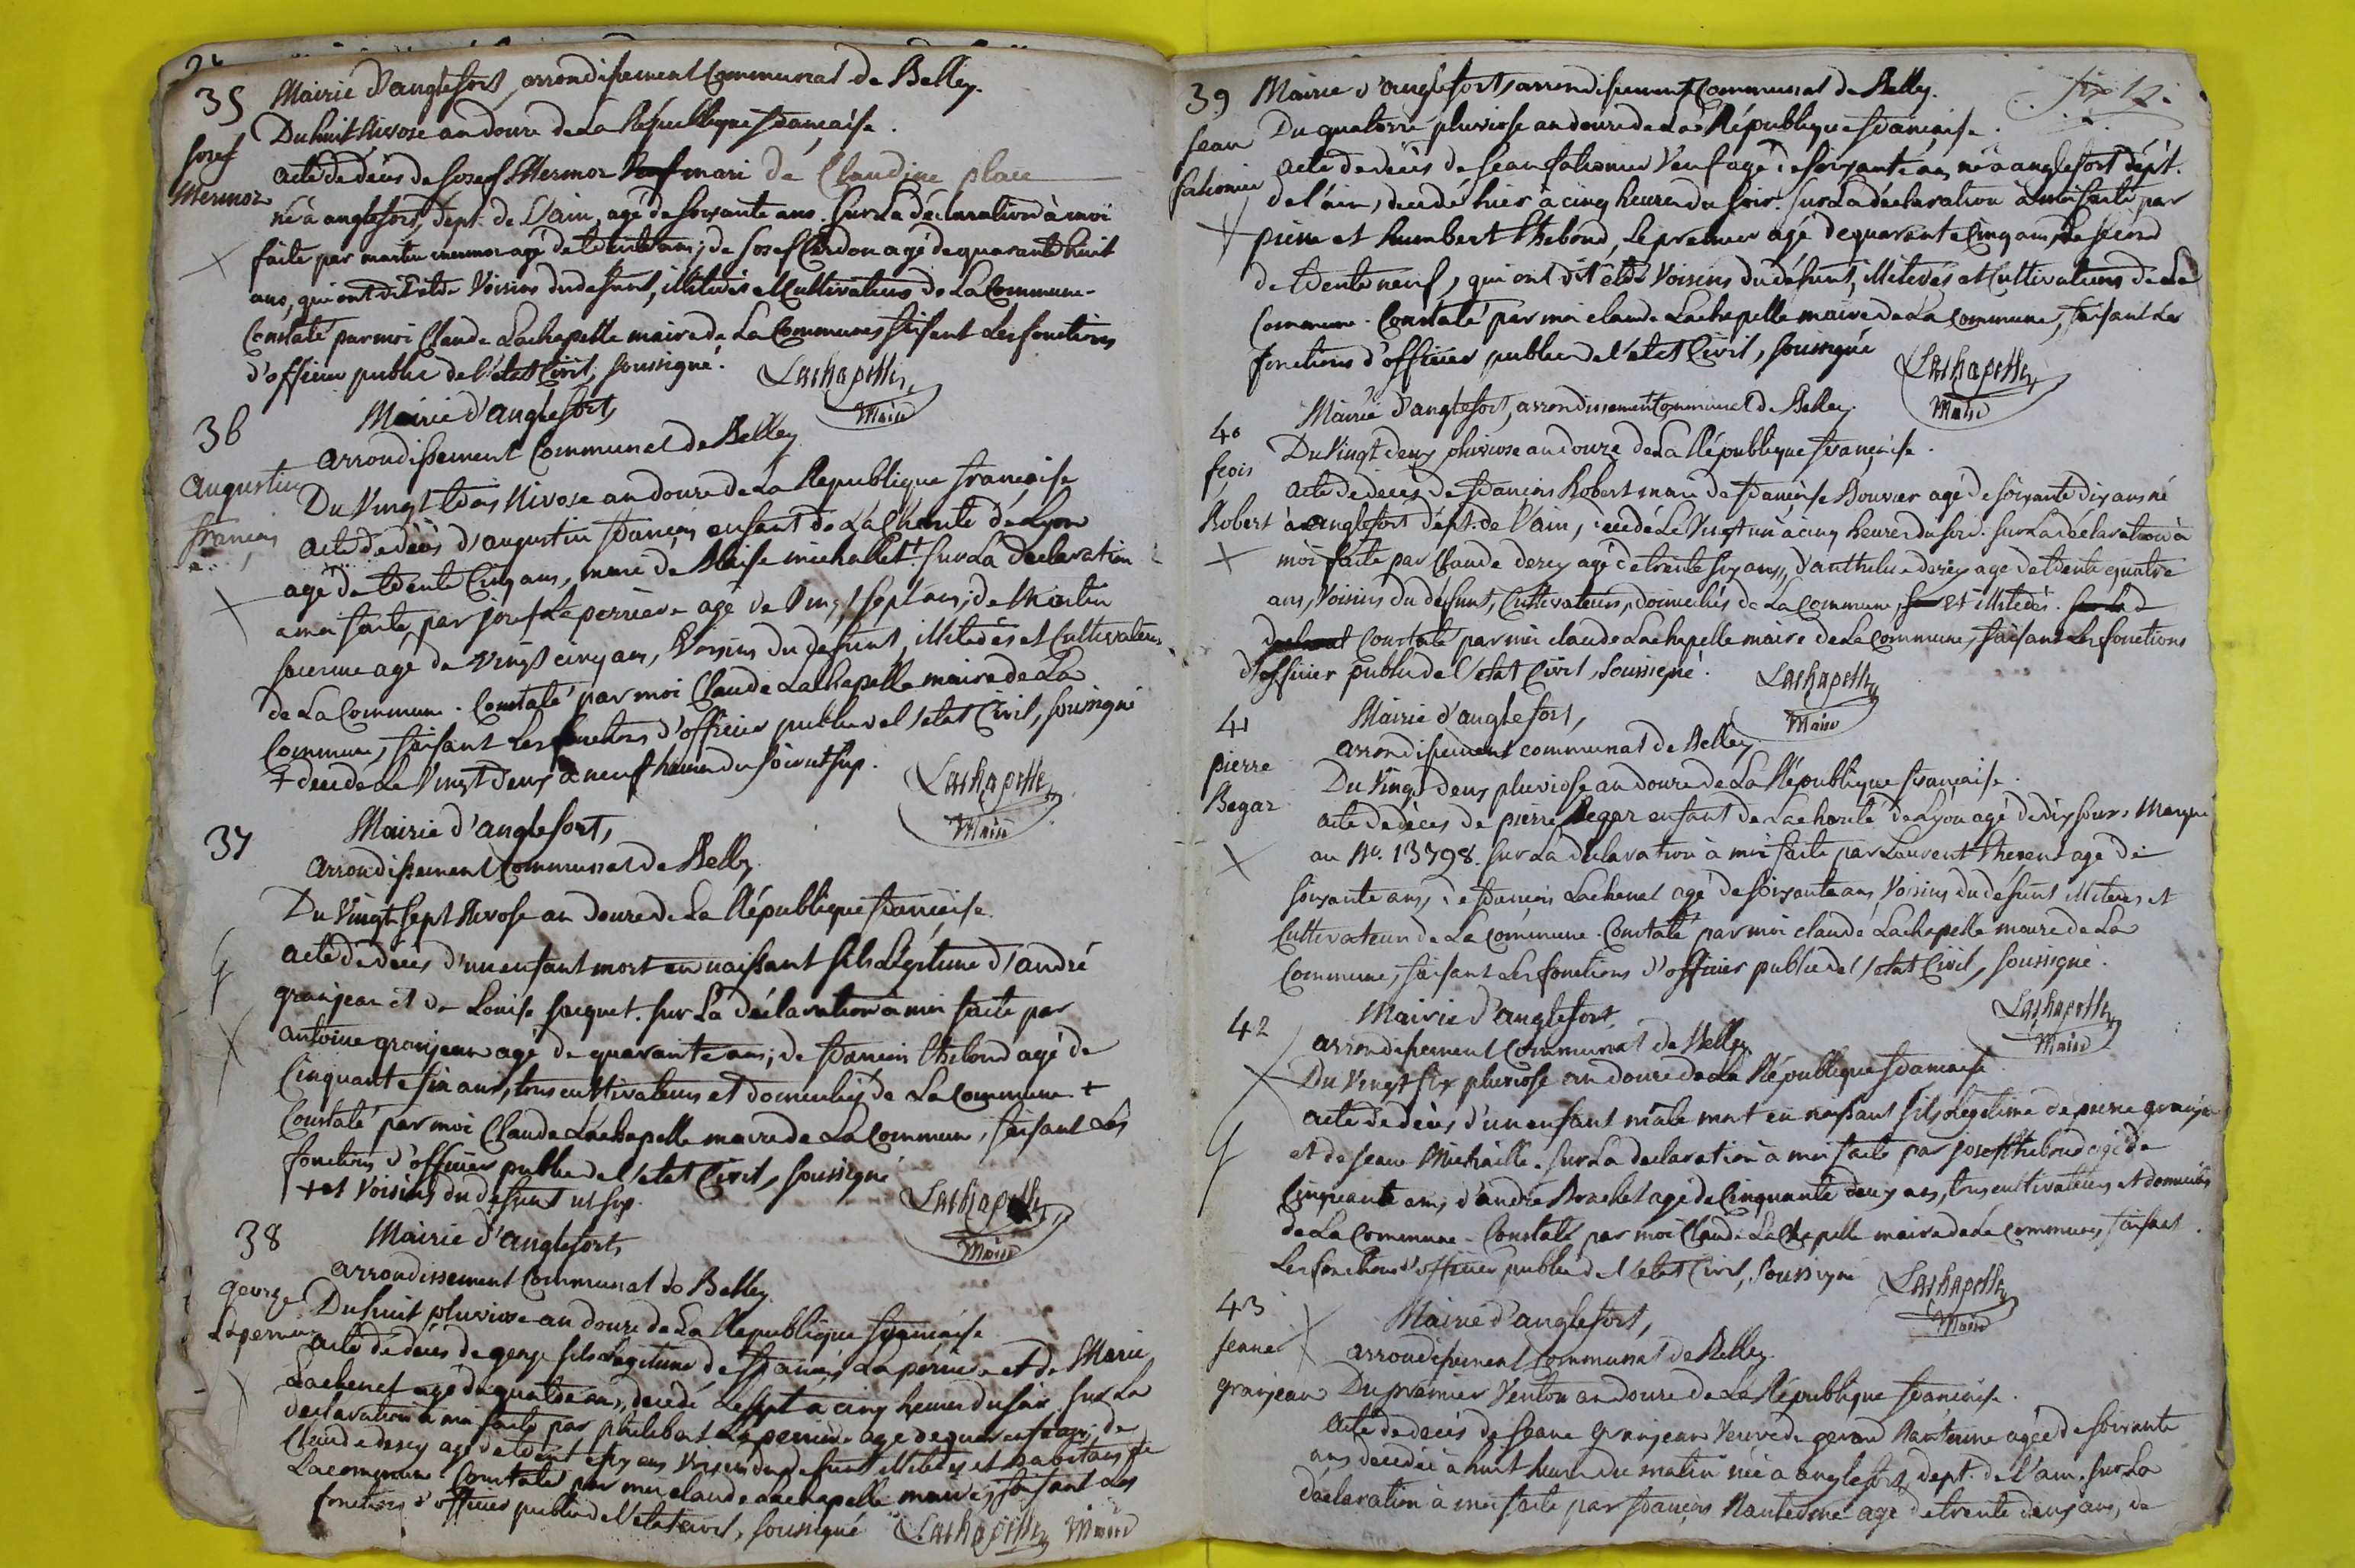 35
Mairie d'anglefort, arrondissement Communal de Belley.
Du huit Nivose an douze de La République française.
Josef
Mermoz
acte de décès de Josef Mermoz mari de Claudine place
né à anglefort, dépt. de L'ain, agé de soixante ans. Sur La déclaration à moi
faite par martin mermoz agé de trente ans; de Josef Cardon agé de quarante huit
ans, qui ont dit être Voisins du defunt, illiterés et Cultivateurs de La Commune.
Constaté par moi Claude Lachapelle maire de La Commune, faisant Les fonctions
d'officier public de l'état Civil, soussigné.
Lachapelle
Maire
36
Mairie d'anglefort,
arrondissement Communal de Belley
Augustin
françois
Du Vingt trois Nivose an douze de La République française
acte de décès d'augustin françois enfant de La Charité de Lyon
agé de trente Cinq ans, mari de Blaise michallet + Sur La declaration
a moi faite par josef Laperrière agé de Vingt sept ans; de Martin
agé de vingt cinq ans, Voisins du defunt, illiterés et Cultivateurs
de La Commune. Constaté par moi Claude Lachapelle maire de La
Commune, faisant Les fonctions d'officier public de l'etat Civil, soussigné
+ decedé Le Vingt deux à neuf heures du soir ut sup.
Lachapelle
Maire
37
Mairie d'anglefort,
arrondissement Communal de Belley.
Du Vingt sept Nivose an douze de La République française.
acte de décès d'un enfant mort en naissant fils Légitime d'andré
granjean et de Louise Jacquet. Sur La déclaration à moi faite par
antoine granjean agé de quarante ans; de françois Thebond agé de
Cinquante six ans, tous cultivateurs et domiciliés de La Commune +
Constaté par moi Claude Lachapelle maire de La Commune, faisant Les
fonctions d'officier public de l'etat Civil, soussigné
+ et Voisins du defunt ut sup.
Lachapelle
Maire
38
Mairie d'anglefort,
arrondissement Communal de Belley
george
Laperriere
Du huit pluviose an douze de La République française
acte de décès de george fils Légitime de françois Laperrière et de Marie
Lachenal agé de quatre ans, decedé Le sept à cinq heures du soir. Sur La
declaration à moi faite par philibert Laperrière agé de quarante ans; de
Claude derey agé de trente six ans Voisins du defunt illiterés et habitans de
La commune. Constaté par moi claude Lachapelle maire, faisant Les
fonctions d'officier public de l'etat civil, soussigné
Lachapelle Maire
39
Mairie d'anglefort, arrondissement Communal de Belley.
Du quatorze pluviose an douze de La République française.
Jean
acte de décès de Jean Veuf agé de soixante ans né à anglefort dépt.
de l'ain, decedé hier à cinq heures du soir. Sur La déclaration à moi faite par
pierre et humbert Thebond, Le premier agé de quarante Cinq ans, Le second
de trente neuf, qui ont dit être Voisins du défunt, illiterés et Cultivateurs de La
Commune. Constaté par moi claude Lachapelle maire de La Commune, faisant Les
fonctions d'officier public de l'etat Civil, soussigné
Lachapelle
Maire
40
Mairie d'anglefort, arrondissement Communal de Belley.
fçois
Robert
Du Vingt deux pluviose an douze de La République française.
acte de deces de françois Robert mari de françoise Bouvier agé de soixante dix ans né
à anglefort dépt. de l'ain, decedé Le Vingt un à cinq heures du soir. Sur La déclaration à
moi faite par Claude derey agé de trente six ans, d'anthelme derey agé de trente quatre
ans, Voisins du défunt, Cultivateurs, domiciliés de La Commune, et illiterés.
Constaté par moi claude Lachapelle maire de La Commune, faisant Les fonctions
d'officier public de l'etat Civil, soussigné.
Lachapelle
Maire
41
Mairie d'anglefort,
arrondissement communal de Belley
pierre
Begaz
Du Vingt deux pluviose an douze de La République française.
acte de décès de pierre Begaz enfant de La charité de Lyon agé de dix jours, Marque
au No. 13798. Sur La déclaration à moi faite par Laurent agé de
soixante ans, de françois Lachenal agé de soixante ans, Voisins du defunt illiterés et
Cultivateurs de La Commune. Constaté par moi claude Lachapelle maire de La
Commune, faisant Les fonctions d'officier public de l'etat Civil, soussigné.
Lachapelle
Maire
42
Mairie d'anglefort,
arrondissement Communal de Belley
Du Vingt six pluviose an douze de La République française
acte de décès d'un enfant mâle mort en naissant fils Légitime de pierre granjean
et de Jeanne Michaille. Sur La declaration à moi faite par josef Thebond agé de
Cinquante ans, d'andré Brachet agé de Cinquante deux ans, tous cultivateurs et domiciliés
de La Commune. Constaté par moi Claude Lachapelle maire de La Commune, faisant
Les fonctions d'officier public de l'etat Civil, soussigné
Lachapelle
Maire
43
Mairie d'anglefort,
arrondissement Communal de Belley.
Jeanne
granjean
Du premier Ventose an douze de La République française.
acte de decès de Jeanne Granjean Veuve de gerard Nanterme agée de soixante
ans decedée à huit heures du matin née à anglefort, dept. de l'ain. Sur La
déclaration à moi faite par françois Nanterme agé de trente deux ans, de